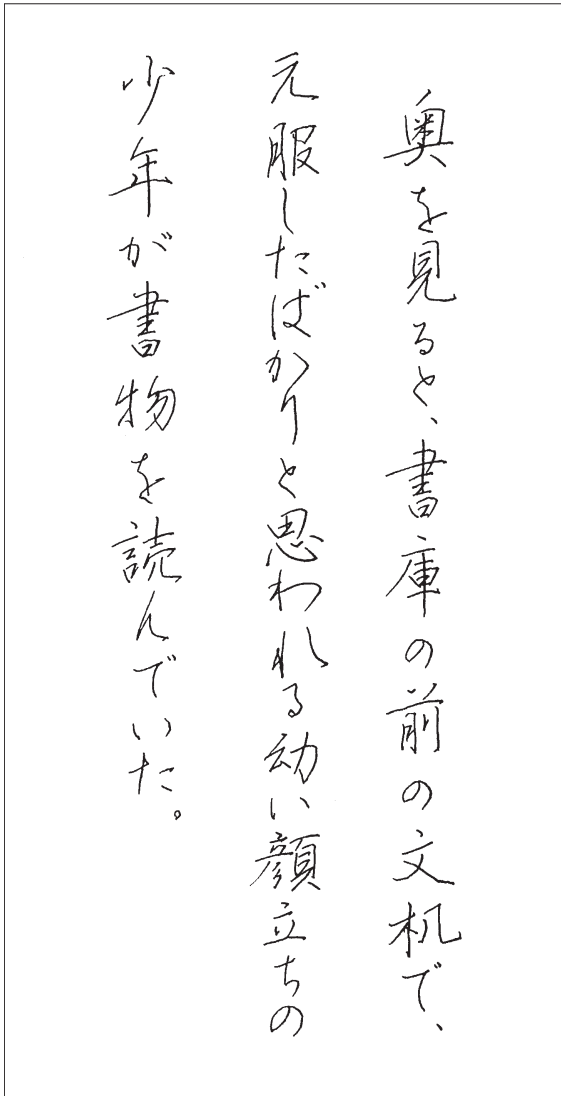 奥を見ると、書庫の前の文机で、
元服したばかりと思われる幼い顔立ちの
少年が書物を読んでいた。